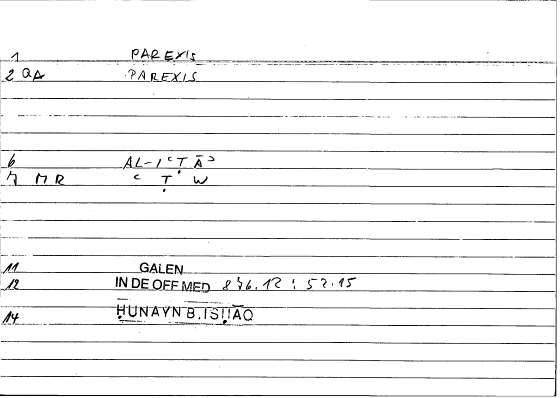 1 PAREXIS
2 QA PAREXIS
6 AL-IʿṬĀʾ
7 MR ʿ Ṭ W
11 GALEN
12 IN DE OFF MED
14 ḤUNAYN B. ISḤĀQ